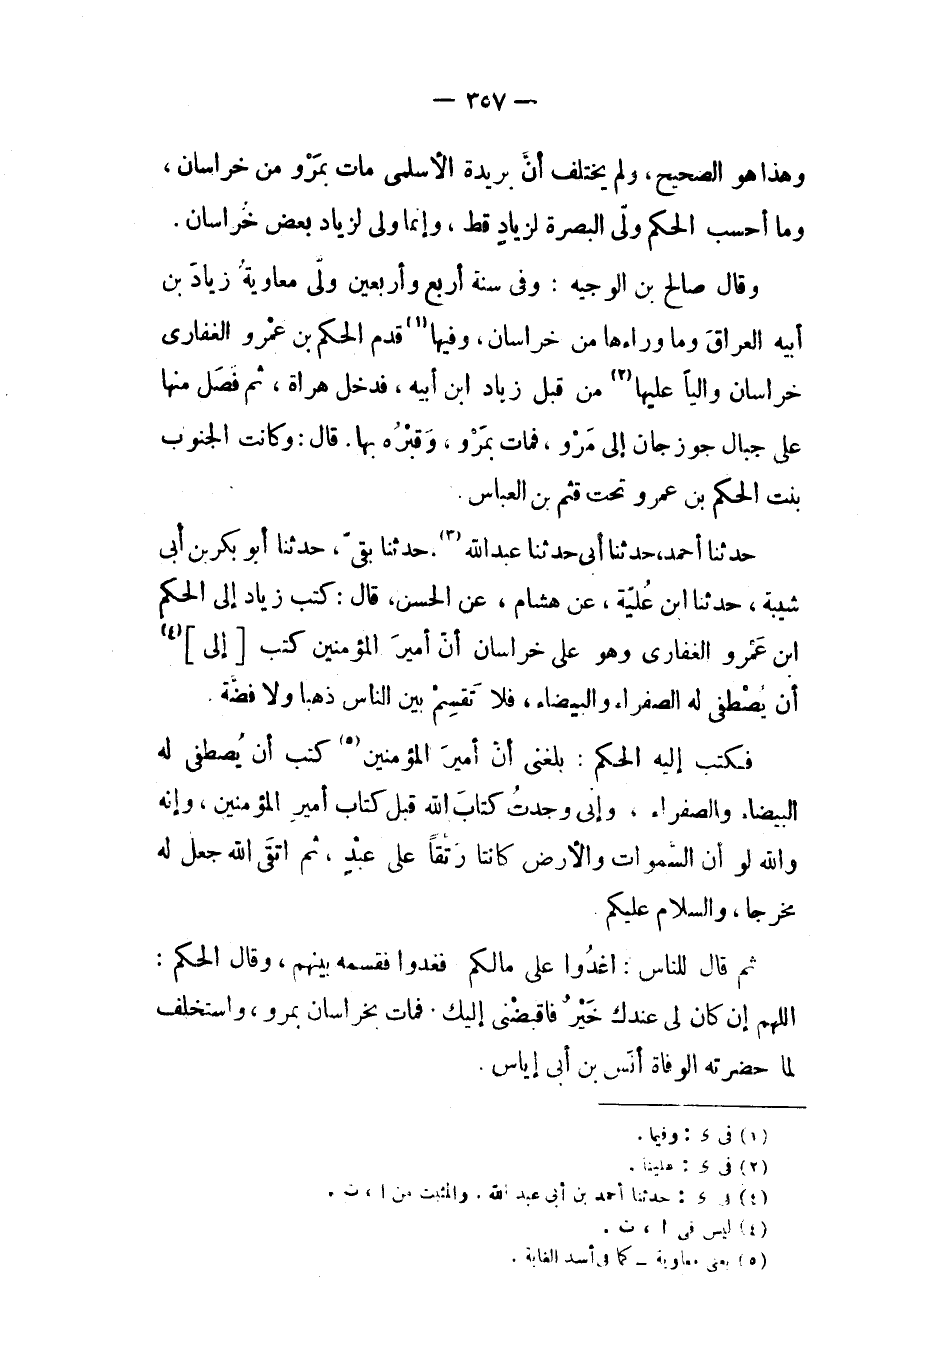 — ٣٥٧ —
وهذا هو الصحيح، ولم يختلف أنَّ بريدة الأسلمى مات بمَرْو من خراسان ،
وما أحسب الحكم ولّى البصرة لزيادٍ قط ، وإنما ولى لزياد بعض خُراسان .
وقال صالح بن الوجيه : وفى سنة أربع وأربعين ولّى معاويةُ زيادَ بن
أبيه العراقَ وما وراءها من خراسان، وفيها(١) قدم الحكم بن عمْرو الغفارى
خراسان والياً عليها(٢) من قبل زياد ابن أبيه ، فدخل هراة ، ثم فصَل منها
على جبال جوزجان إلى مَرْو ، فمات بمَرْو ، وَقبْرُه بها. قال: وكانت الجنوب
بنت الحكم بن عمرو تحت قثم بن العباس .
حدثنا أحمد، حدثنا أبى حدثنا عبدالله(٣) . حدثنا بقىّ ، حدثنا أبو بكر بن أبى
شيبة ، حدثنا ابن عُليّة ، عن هشام ، عن الحسن، قال: كتب زياد إلى الحكم
ابن عَمْرو الغفارى وهو على خراسان أنّ أميرَ المؤمنين كتب [ إلى ](٤)
أن يُصْطفى له الصفراء والبيضاء ، فلا تَقسِمْ بين الناس ذهبا ولا فضَّة .
فكتب إليه الحكم : بلغنى أنّ أميرَ المؤمنين(٥) كتب أن يُصطفى له
البيضاء والصفراء ، وإنى وجدتُ كتابَ الله قبل كتاب أمير المؤمنين ، وإنه
والله لو أن السَّموات والأرض كانتا رَتْقاً على عبْدٍ ، ثم اتقَى الله جعل له
مخرجا ، والسلام عليكم .
ثم قال للناس : اغدُوا على مالكم فغدوا فقسمه بينهم ، وقال الحكم :
اللهم إن كان لى عندك خَيْرٌ فاقبضْنى إليك . فمات بخراسان بمرو ، واستخلف
لما حضرته الوفاة أنَس بن أبى إياس .
(١) فى ى : وفيما .
(٢) فى ى : علينا .
(٤) فى ى : حدثنا أحمد بن أبى عبد الله . والمثبت من ا ، ت .
(٤) ليس فى ا ، ت .
(٥) يعنى معاوية — كما فى أسد الغابة .